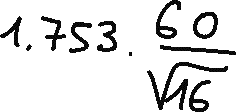 1.753. \frac{60}{\sqrt{16}}